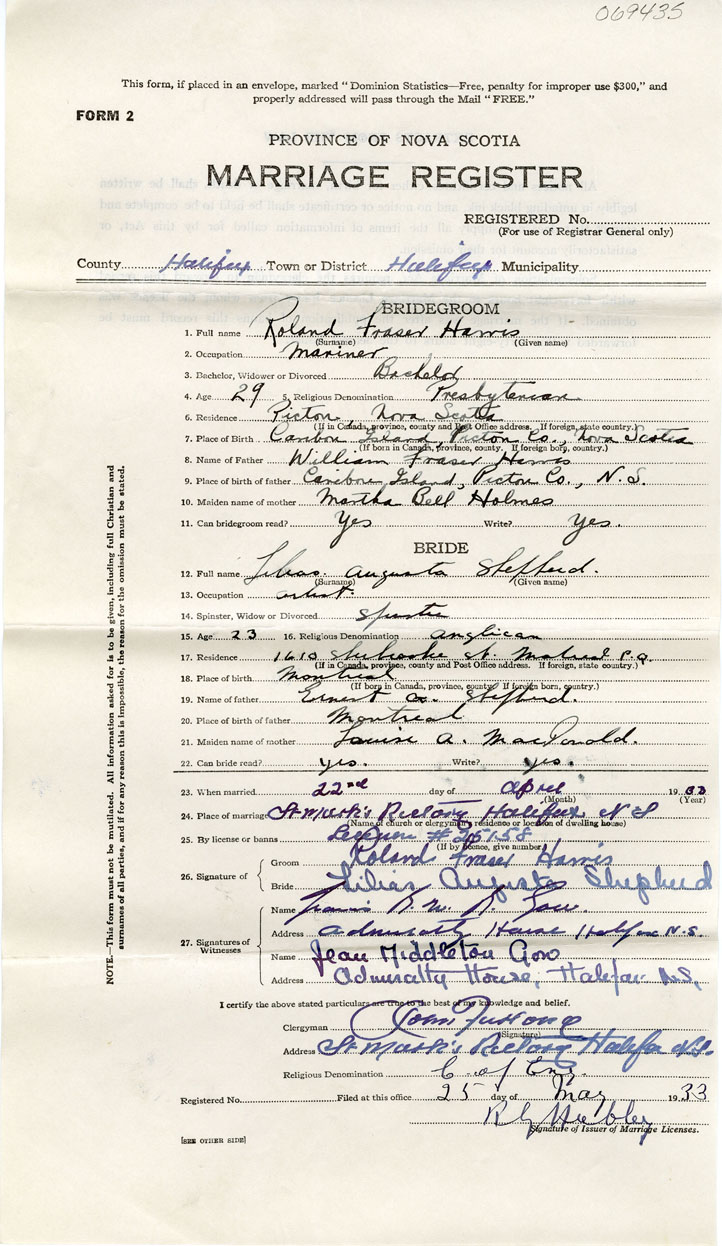 069435
This form, if placed in an envelope, marked "Dominion Statistics—Free, penalty for improper use $300," and
properly addressed will pass through the Mail "FREE."
FORM 2
PROVINCE OF NOVA SCOTIA
MARRIAGE REGISTER
REGISTERED No.
(For use of Registrar General only)
County Halifax Town or District Halifax Municipality
BRIDEGROOM
1. Full name Roland Fraser Harris
(Surname) (Given name)
2. Occupation Mariner
3. Bachelor, Widower or Divorced Bachelor
4. Age 29 5. Religious Denomination Presbyterian
6. Residence Pictou, Nova Scotia
(If in Canada, province, county and Post Office address. If foreign, state country.)
7. Place of Birth Caribou Island, Pictou Co., Nova Scotia
(If born in Canada, province, county. If foreign born, country.)
8. Name of Father William Fraser Harris
9. Place of birth of father Caribou Island, Pictou Co., N.S.
10. Maiden name of mother Martha Bell Holmes
11. Can bridegroom read? Yes Write? Yes.
BRIDE
12. Full name Lilias Augusta Shepherd.
(Surname) (Given name)
13. Occupation artist
14. Spinster, Widow or Divorced Spinster
15. Age 23 16. Religious Denomination Anglican
17. Residence 1610 Sherbrooke St. Montreal P.Q.
(If in Canada, province, county and Post Office address. If foreign, state country.)
18. Place of birth Montreal
(If born in Canada, province, county. If foreign born, country.)
19. Name of father Ernest A. Shepherd.
20. Place of birth of father Montreal
21. Maiden name of mother Louise A. MacDonald.
22. Can bride read? yes. Write? yes.
23. When married 22nd day of April 1933
(Month) (Year)
24. Place of marriage St Mark's Rectory Halifax N S
(Name of church or clergyman's residence or location of dwelling house)
25. By license or banns License # 25158
(If by licence, give number)
26. Signature of
Groom Roland Fraser Harris
Bride Lilias Augusta Shepherd
27. Signatures of Witnesses
Name Francis R. W. R. Gow.
Address Admiralty House Halifax N.S.
Name Jean Middleton Gow
Address Admiralty House, Halifax N.S.
I certify the above stated particulars are true to the best of my knowledge and belief.
Clergyman John Furlong
(Signature)
Address St Mark's Rectory Halifax N.S.
Religious Denomination C. of Eng.
Registered No. Filed at this office 25 day of May 1933
Signature of Issuer of Marriage Licenses.
[SEE OTHER SIDE]
NOTE.—This form must not be mutilated. All information asked for is to be given, including full Christian and
surnames of all parties, and if for any reason this is impossible, the reason for the omission must be stated.